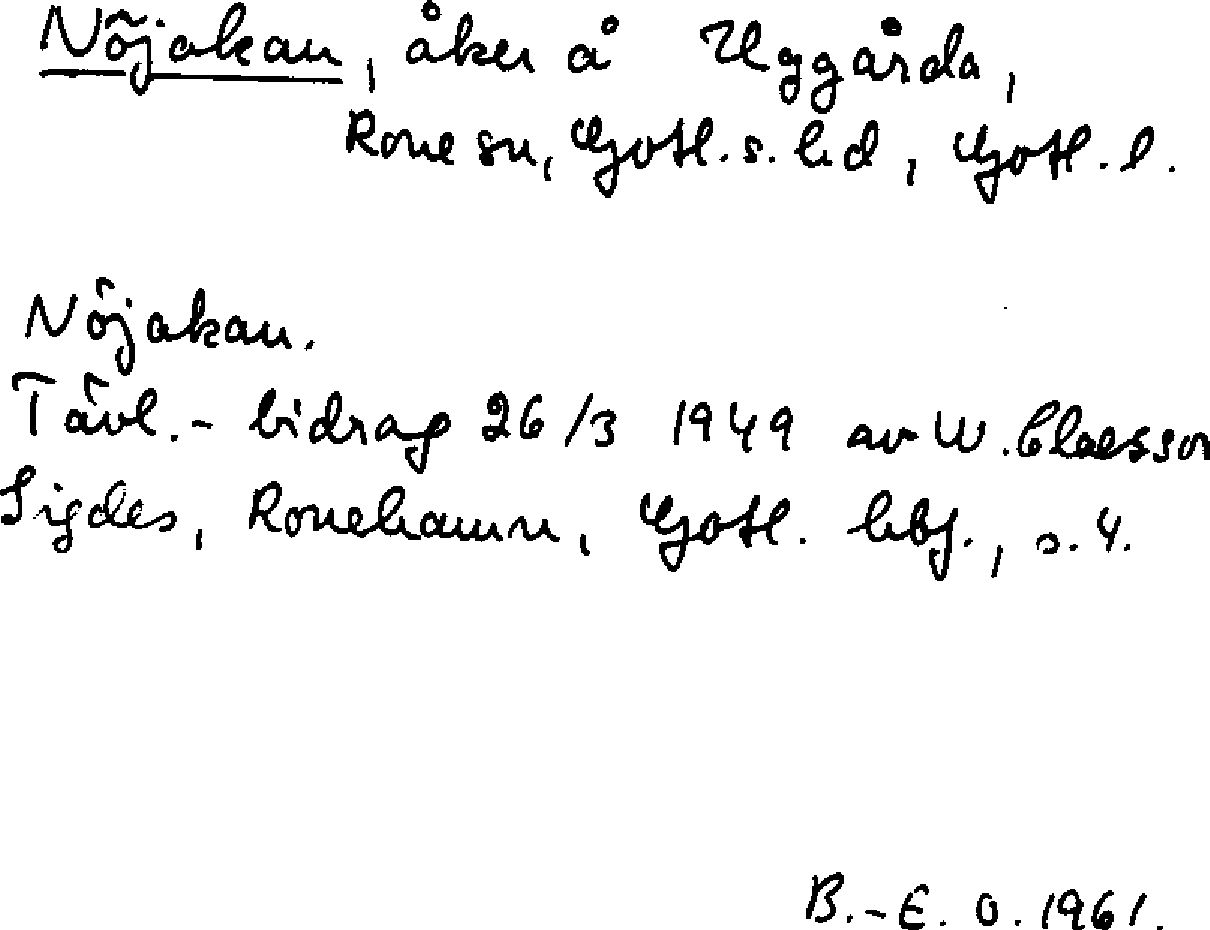 Nöjakan, åker å Uggårda,
Rone sn, Gotl. s. hd, Gotl. l.
Nöjakan.
Tävl.- bidrag 26/3 1949 av W. Claesson
Sigdes, Ronehamn, Gotl. hbf., s. 4.
B.-E. O. 1961.